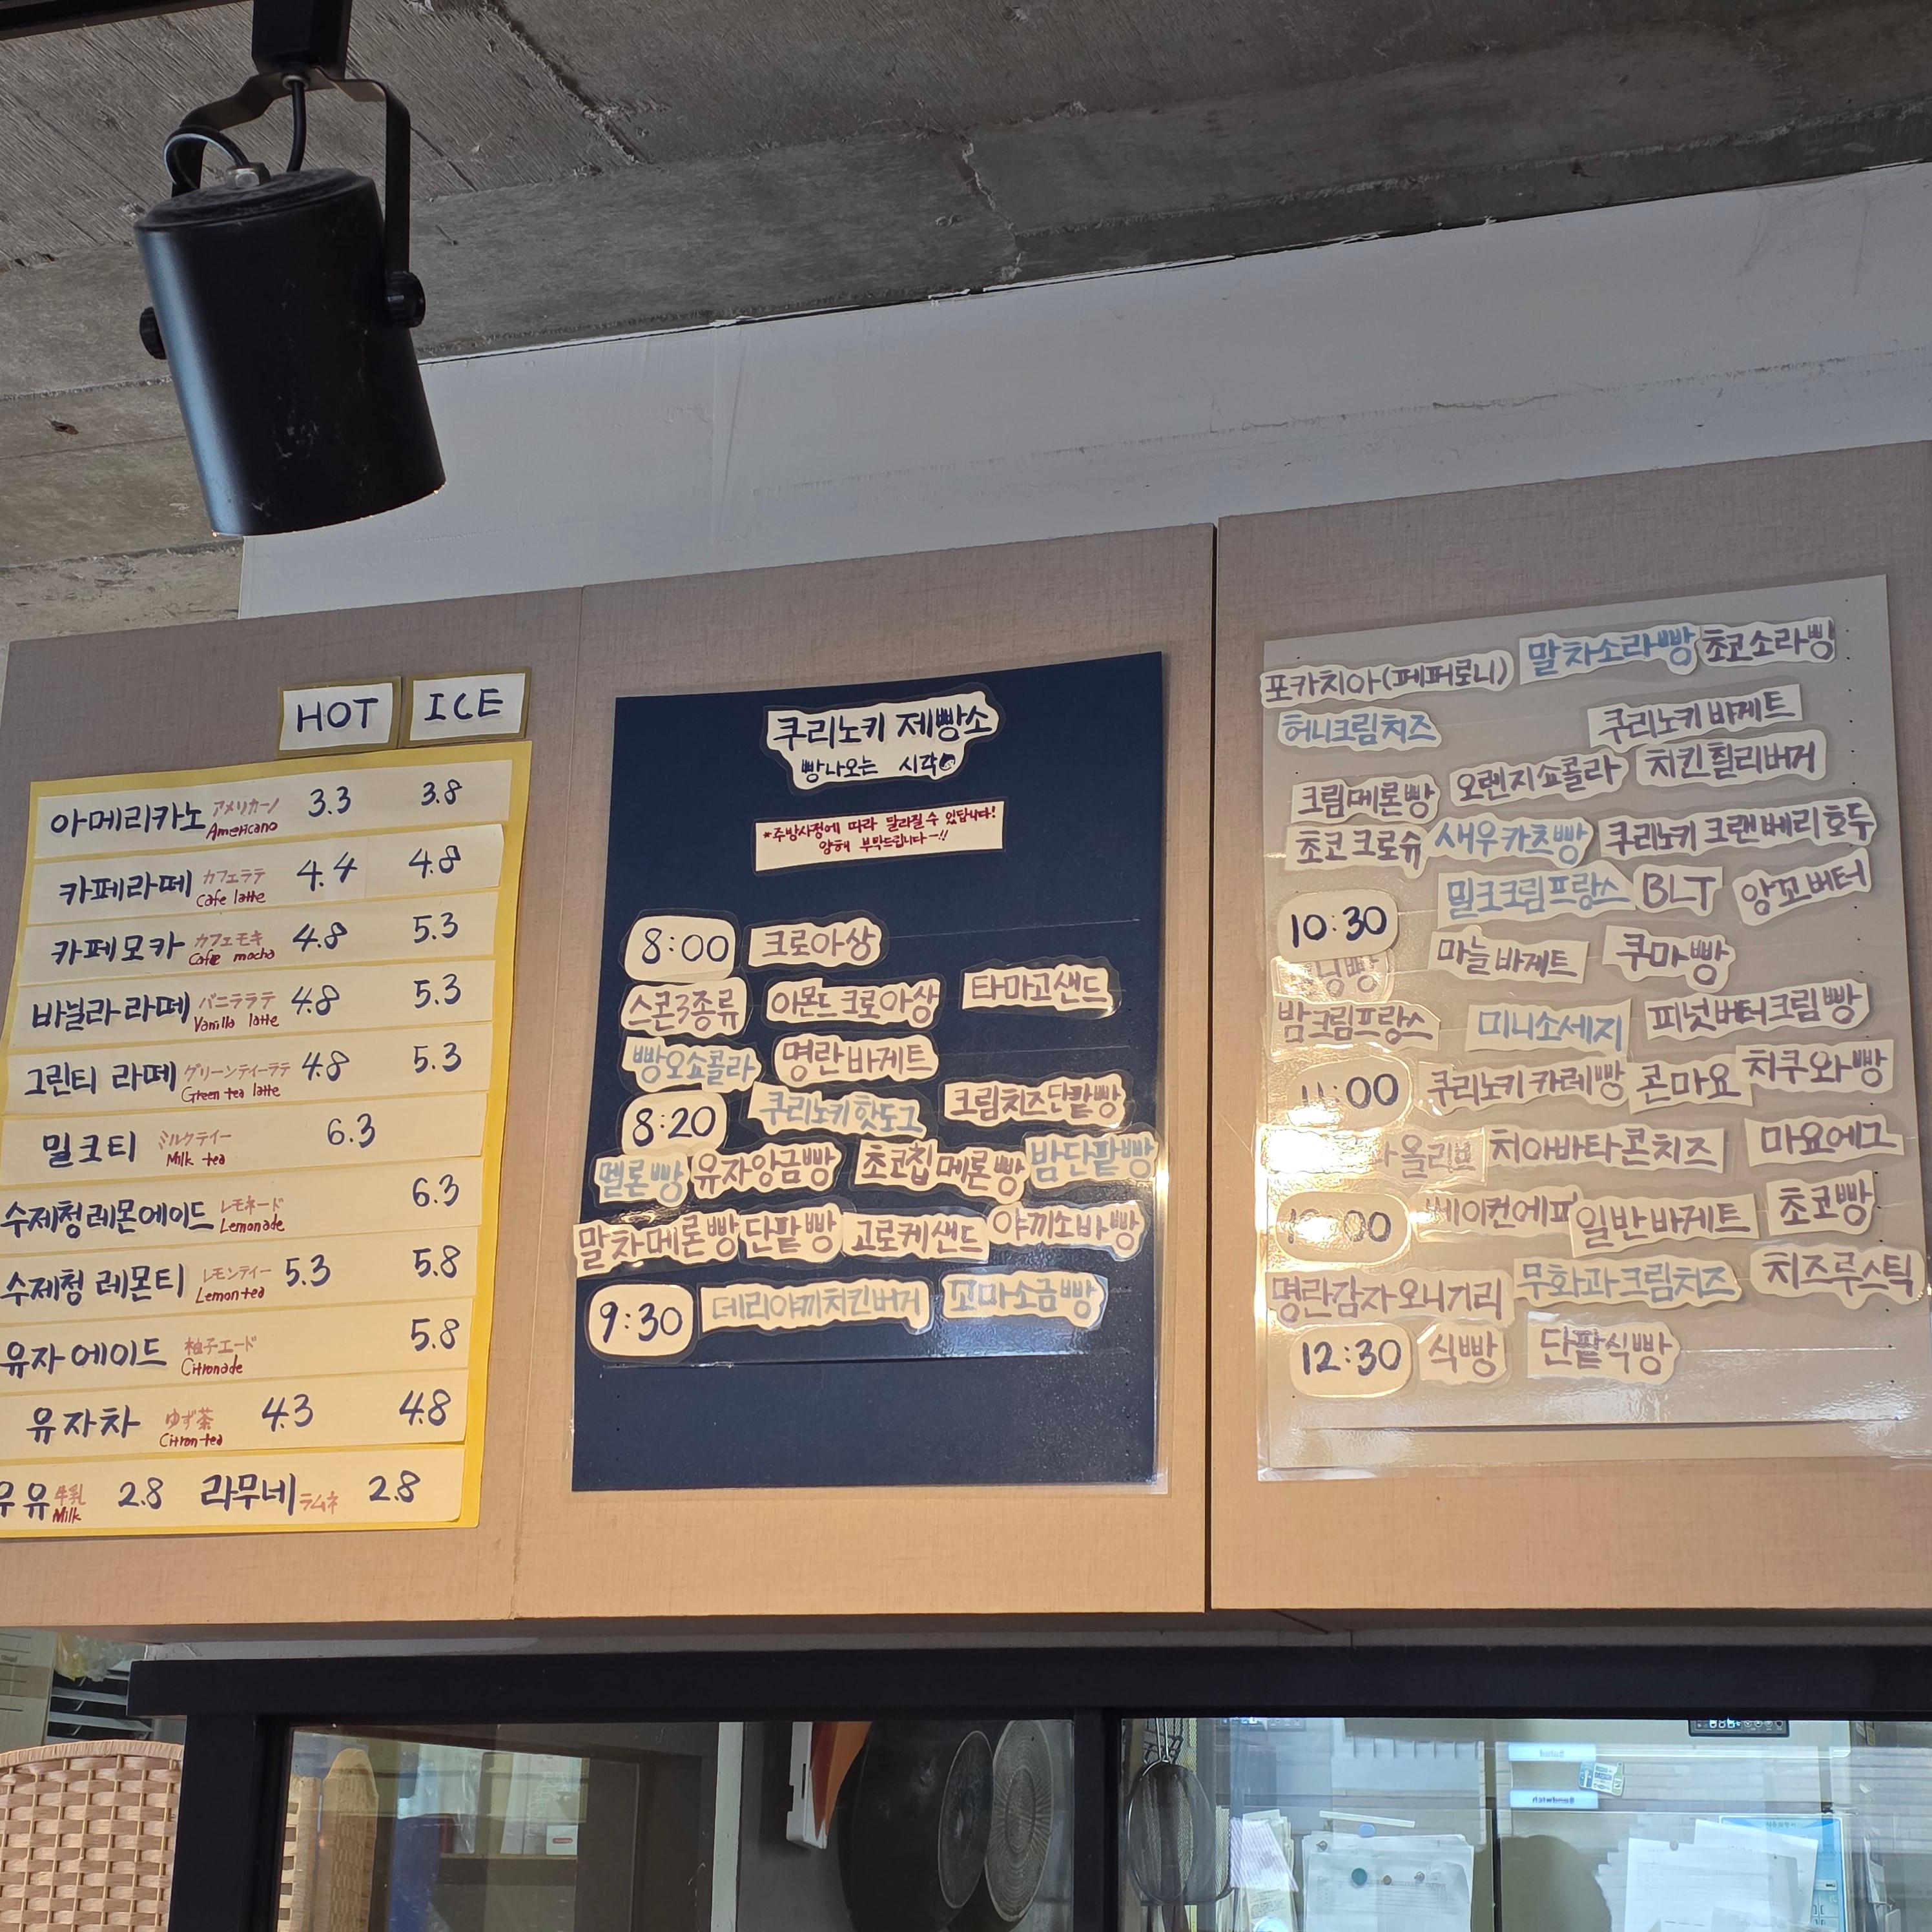 HOT ICE
아메리카노 アメリカーノ Americano 3.3 3.8
카페라떼 カフェラテ Cafe latte 4.4 4.8
카페모카 カフェモキ Cafe mocha 4.8 5.3
바닐라 라떼 バニララテ Vanilla latte 4.8 5.3
그린티 라떼 グリーンティーラテ Green tea latte 4.8 5.3
밀크티 ミルクティー Milk tea 6.3
수제청 레몬에이드 レモネード Lemonade 6.3
수제청 레몬티 レモンティー Lemon tea 5.3 5.8
유자 에이드 柚子エード Citronade 5.8
유자차 ゆず茶 Citron tea 4.3 4.8
우유 牛乳 Milk 2.8 라무네 ラムネ 2.8
쿠리노키 제빵소
빵나오는 시각
*주방사정에 따라 달라질 수 있답니다!
양해 부탁드립니다~!!
8:00 크로아상
스콘3종류 아몬드 크로아상 타마고샌드
빵오쇼콜라 명란 바게트
8:20 쿠리노키핫도그 크림치즈단팥빵
멜론빵 유자앙금빵 초코칩 메론빵 밤단팥빵
말차메론빵 단팥빵 고로케샌드 야끼소바빵
9:30 데리야끼치킨버거 꼬마소금빵
포카치아(페퍼로니) 말차소라빵 초코소라빵
허니크림치즈 쿠리노키 바게트
크림메론빵 오렌지쇼콜라 치킨칠리버거
초코 크로슈 새우카츠빵 쿠리노키 크랜베리호두
밀크크림프랑스 BLT 앙꼬버터
10:30 마늘바게트 쿠마빵
밤크림프랑스 미니소세지 피넛버터크림빵
11:00 쿠리노키 카레빵 콘마요 치쿠와빵
올리브 치아바타콘치즈 마요에그
베이컨에피 일반바게트 초코빵
명란감자오니기리 무화과크림치즈 치즈루스틱
12:30 식빵 단팥식빵